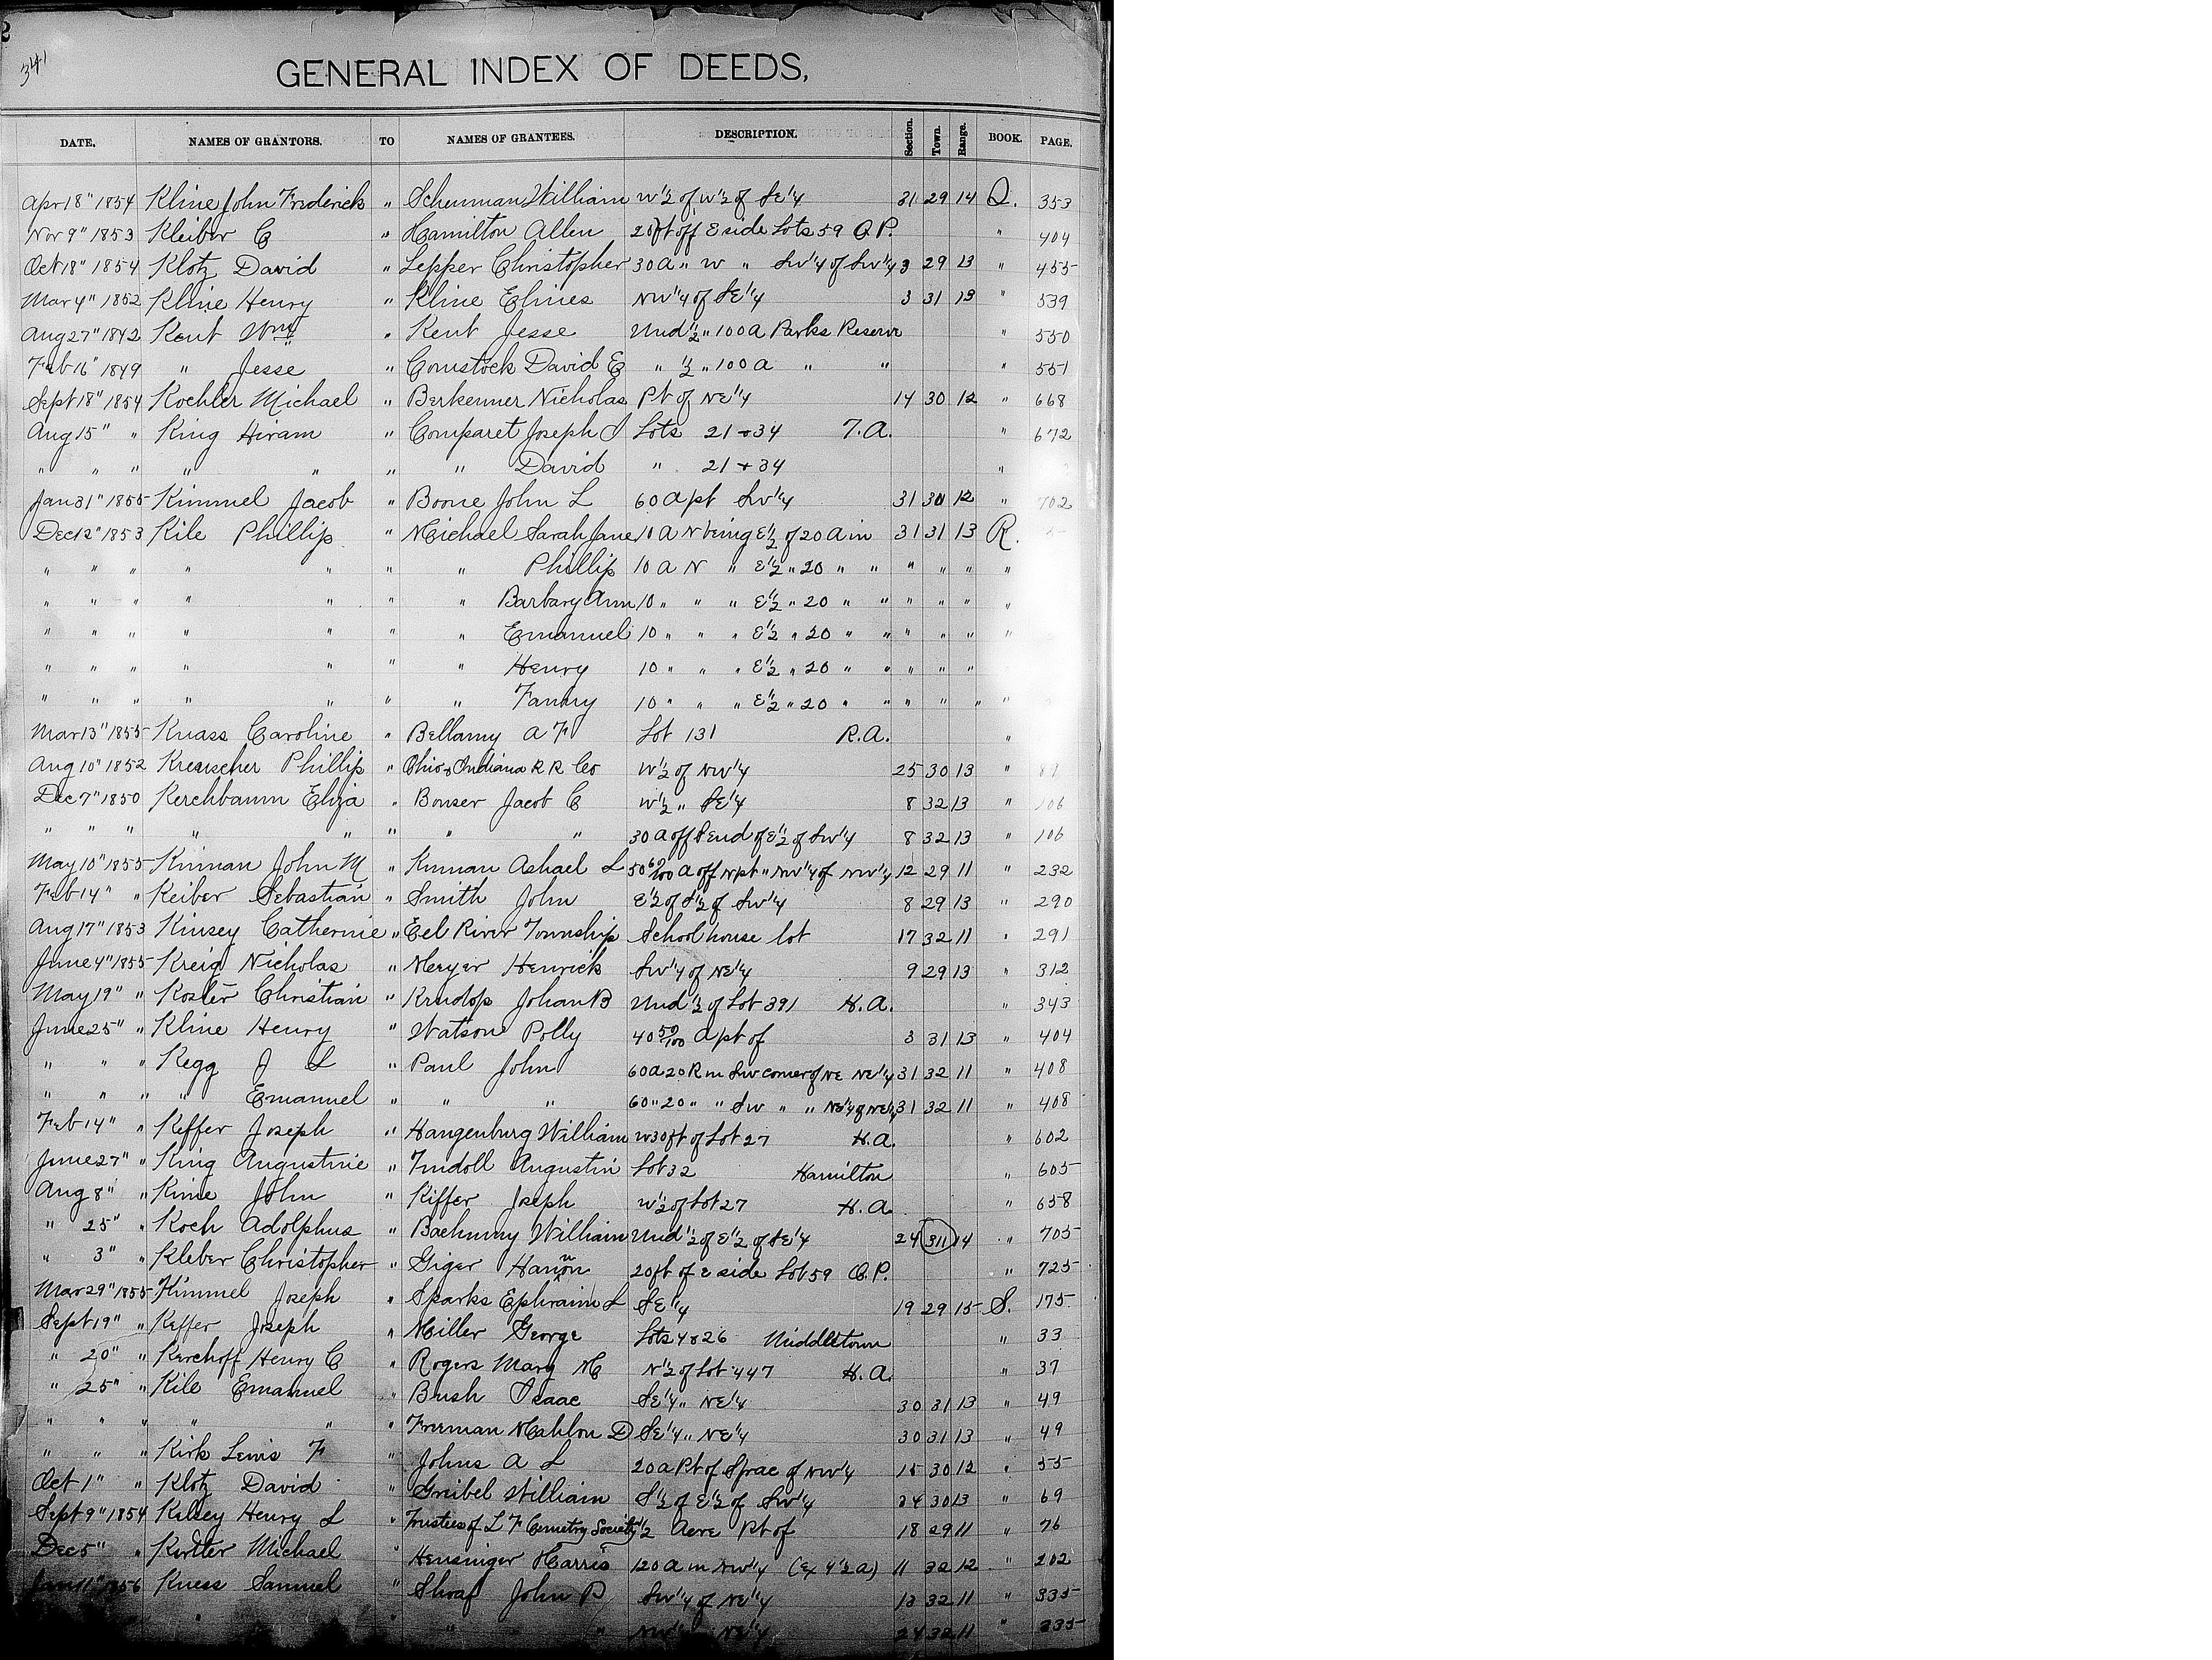 2
341
GENERAL INDEX OF DEEDS,
DATE, NAMES OF GRANTORS. TO NAMES OF GRANTEES. DESCRIPTION. Section. Town. Range. BOOK. PAGE.
Apr 18" 1854 Kline John Frederick " Schuman William W 1/2 of W 1/2 of SE 1/4 31 29 14 Q. 353
Nov 9" 1853 Kleiber C " Hamilton Allen 20 ft off E side Lots 59 O.P. " 404
Oct 18" 1854 Klotz David " Lepper Christopher 30 a " W " SW 1/4 of SW 1/4 3 29 13 " 455
Mar 4" 1852 Kline Henry " Kline NW 1/4 of SE 1/4 3 31 13 " 539
Aug 27" 1842 Kent Wm " Kent Jesse Und 1/2 " 100 a Parks Reserve " 550
Feb 16" 1849 " Jesse " Comstock David E " 1/2 " 100 a " " " 551
Sept 18" 1854 Koehler Michael " Berkenner Nicholas Pt of NE 1/4 14 30 12 " 668
Aug 15" " King Hiram " Comparet Joseph J Lots 21 + 34 T.A. " 672
" " " " " " " David " 21 + 34 "
Jan 31" 1855 Kimmel Jacob " Boone John L 60 a pt SW 1/4 31 30 12 " 702
Dec 12" 1853 Kile Phillip " Michael Sarah Jane 10 A N being E 1/2 of 20 A in 31 31 13 R.
" " " " " " " Phillip 10 a N " E 1/2 " 20 " " " " " "
" " " " " " " Barbary Ann 10 " " " E 1/2 " 20 " " " " " "
" " " " " " " Emanuel 10 " " " E 1/2 " 20 " " " " " "
" " " " " " " Henry 10 " " " E 1/2 " 20 " " " " "
" " " " " " " Fanny 10 " " " E 1/2 " 20 " " " " " "
Mar 13" 1855 Knass Caroline " Bellamy A F Lot 131 R.A. "
Aug 10" 1852 Kreuscher Phillip " Ohio & Indiana R R Co W 1/2 of NW 1/4 25 30 13 " 89
Dec 7" 1850 Kerchbaum Eliza " Bonser Jacob C W 1/2 " SE 1/4 8 32 13 " 106
" " " " " " " " 30 a off S end of E 1/2 of SW 1/4 8 32 13 " 106
May 10" 1855 Kinnan John M " Kinnan Ashael L 50 60/100 a off N pt " NW 1/4 of NW 1/4 12 29 11 " 232
Feb 14" " Keiber Sebastian " Smith John E 1/2 of S 1/2 of SW 1/4 8 29 13 " 290
Aug 17" 1853 Kinsey Catherine " Eel River Township School house lot 17 32 11 " 291
June 4" 1855 Kreig Nicholas " Meyer Henrick SW 1/4 of NE 1/4 9 29 13 " 312
May 19" " Koster Christian " Krudop Johan B Und 1/2 of Lot 391 H.A. " 343
June 25" " Kline Henry " Watson Polly 40 50/100 a pt of 3 31 13 " 404
" " " Kegg J L " Paul John 60 a 20 R in SW corner of NE NE 1/4 31 32 11 " 408
" " " " Emanuel " " " 60 " 20 " " SW " " NE 1/4 of NE 1/4 31 32 11 " 408
Feb 14" " Keffer Joseph " Hangenburg William W 30 ft of Lot 27 H.A. " 602
June 27" " King Augustine " Tindoll Augustin Lot 32 Hamilton " 605
Aug 8" " Kime John " Kiffer Joseph W 1/2 of Lot 27 H.A. " 658
" 25" " Koch Adolphus " William Und 1/2 of E 1/2 of SE 1/4 24 311 14 " 705
" 3" " Kleber Christopher " Giger 20 ft of E side Lot 59 O.P. " 725
Mar 29" 1855 Kimmel Joseph " Sparks Ephraim L SE 1/4 19 29 15 S. 175
Sept 19" " Keffer Joseph " Miller George Lots 4 & 26 Middletown " 33
" 20" " Kerchoff Henry C " Rogers Mary M N 1/2 of Lot 447 H.A. " 37
" 25" " Kile Emanuel " Bush Isaac SE 1/4 " NE 1/4 30 31 13 " 49
" " " " " " Freeman Mahlon D SE 1/4 " NE 1/4 30 31 13 " 49
" " " Kirk Lewis F " Johns A L 20 a Pt of S frac of NW 1/4 15 30 12 " 55
Oct 1" " Klotz David " Griebel William S 1/2 of E 1/2 of SW 1/4 24 30 13 " 69
Sept 9" 1854 Kelsey Henry L " Trustees of L F Cemetry Society 1/2 Acre Pt of 18 29 11 " 76
Dec 5" " Michael " Hensinger Harris 120 a in NW 1/4 (Ex 4 1/2 a) 11 32 12 " 202
Jan 11" 1856 Kness Samuel " Shoaf John P SW 1/4 of NE 1/4 13 32 11 " 335
" " " " NW 1/4 " NE 1/4 24 32 11 " 335